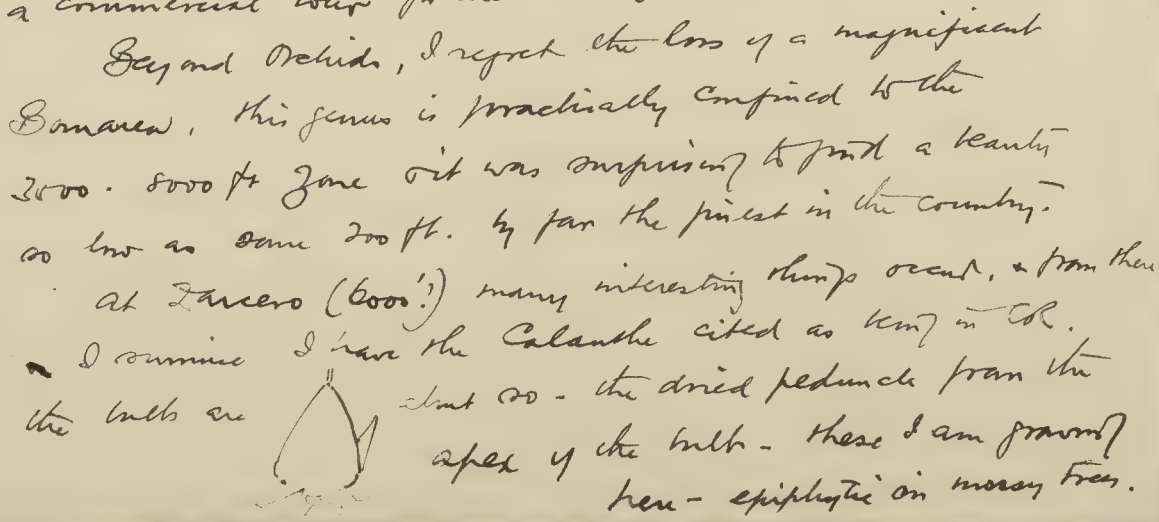 a commercial tour
Beyond Orchids, I regret the loss of a magnificent
Bomarea, this genus is practically confined to the
3500 - 8000 ft zone & it was surprising to find a beauty
so low as some 200 ft. by far the finest in the country.
At Zarcero (6000'!) many interesting things occur, & from there
I surmise I have the Calanthe cited as being in CR.
the bulbs are about so - the dried peduncle from the
apex of the bulb - these I am growing
here - epiphytic on mossy trees.